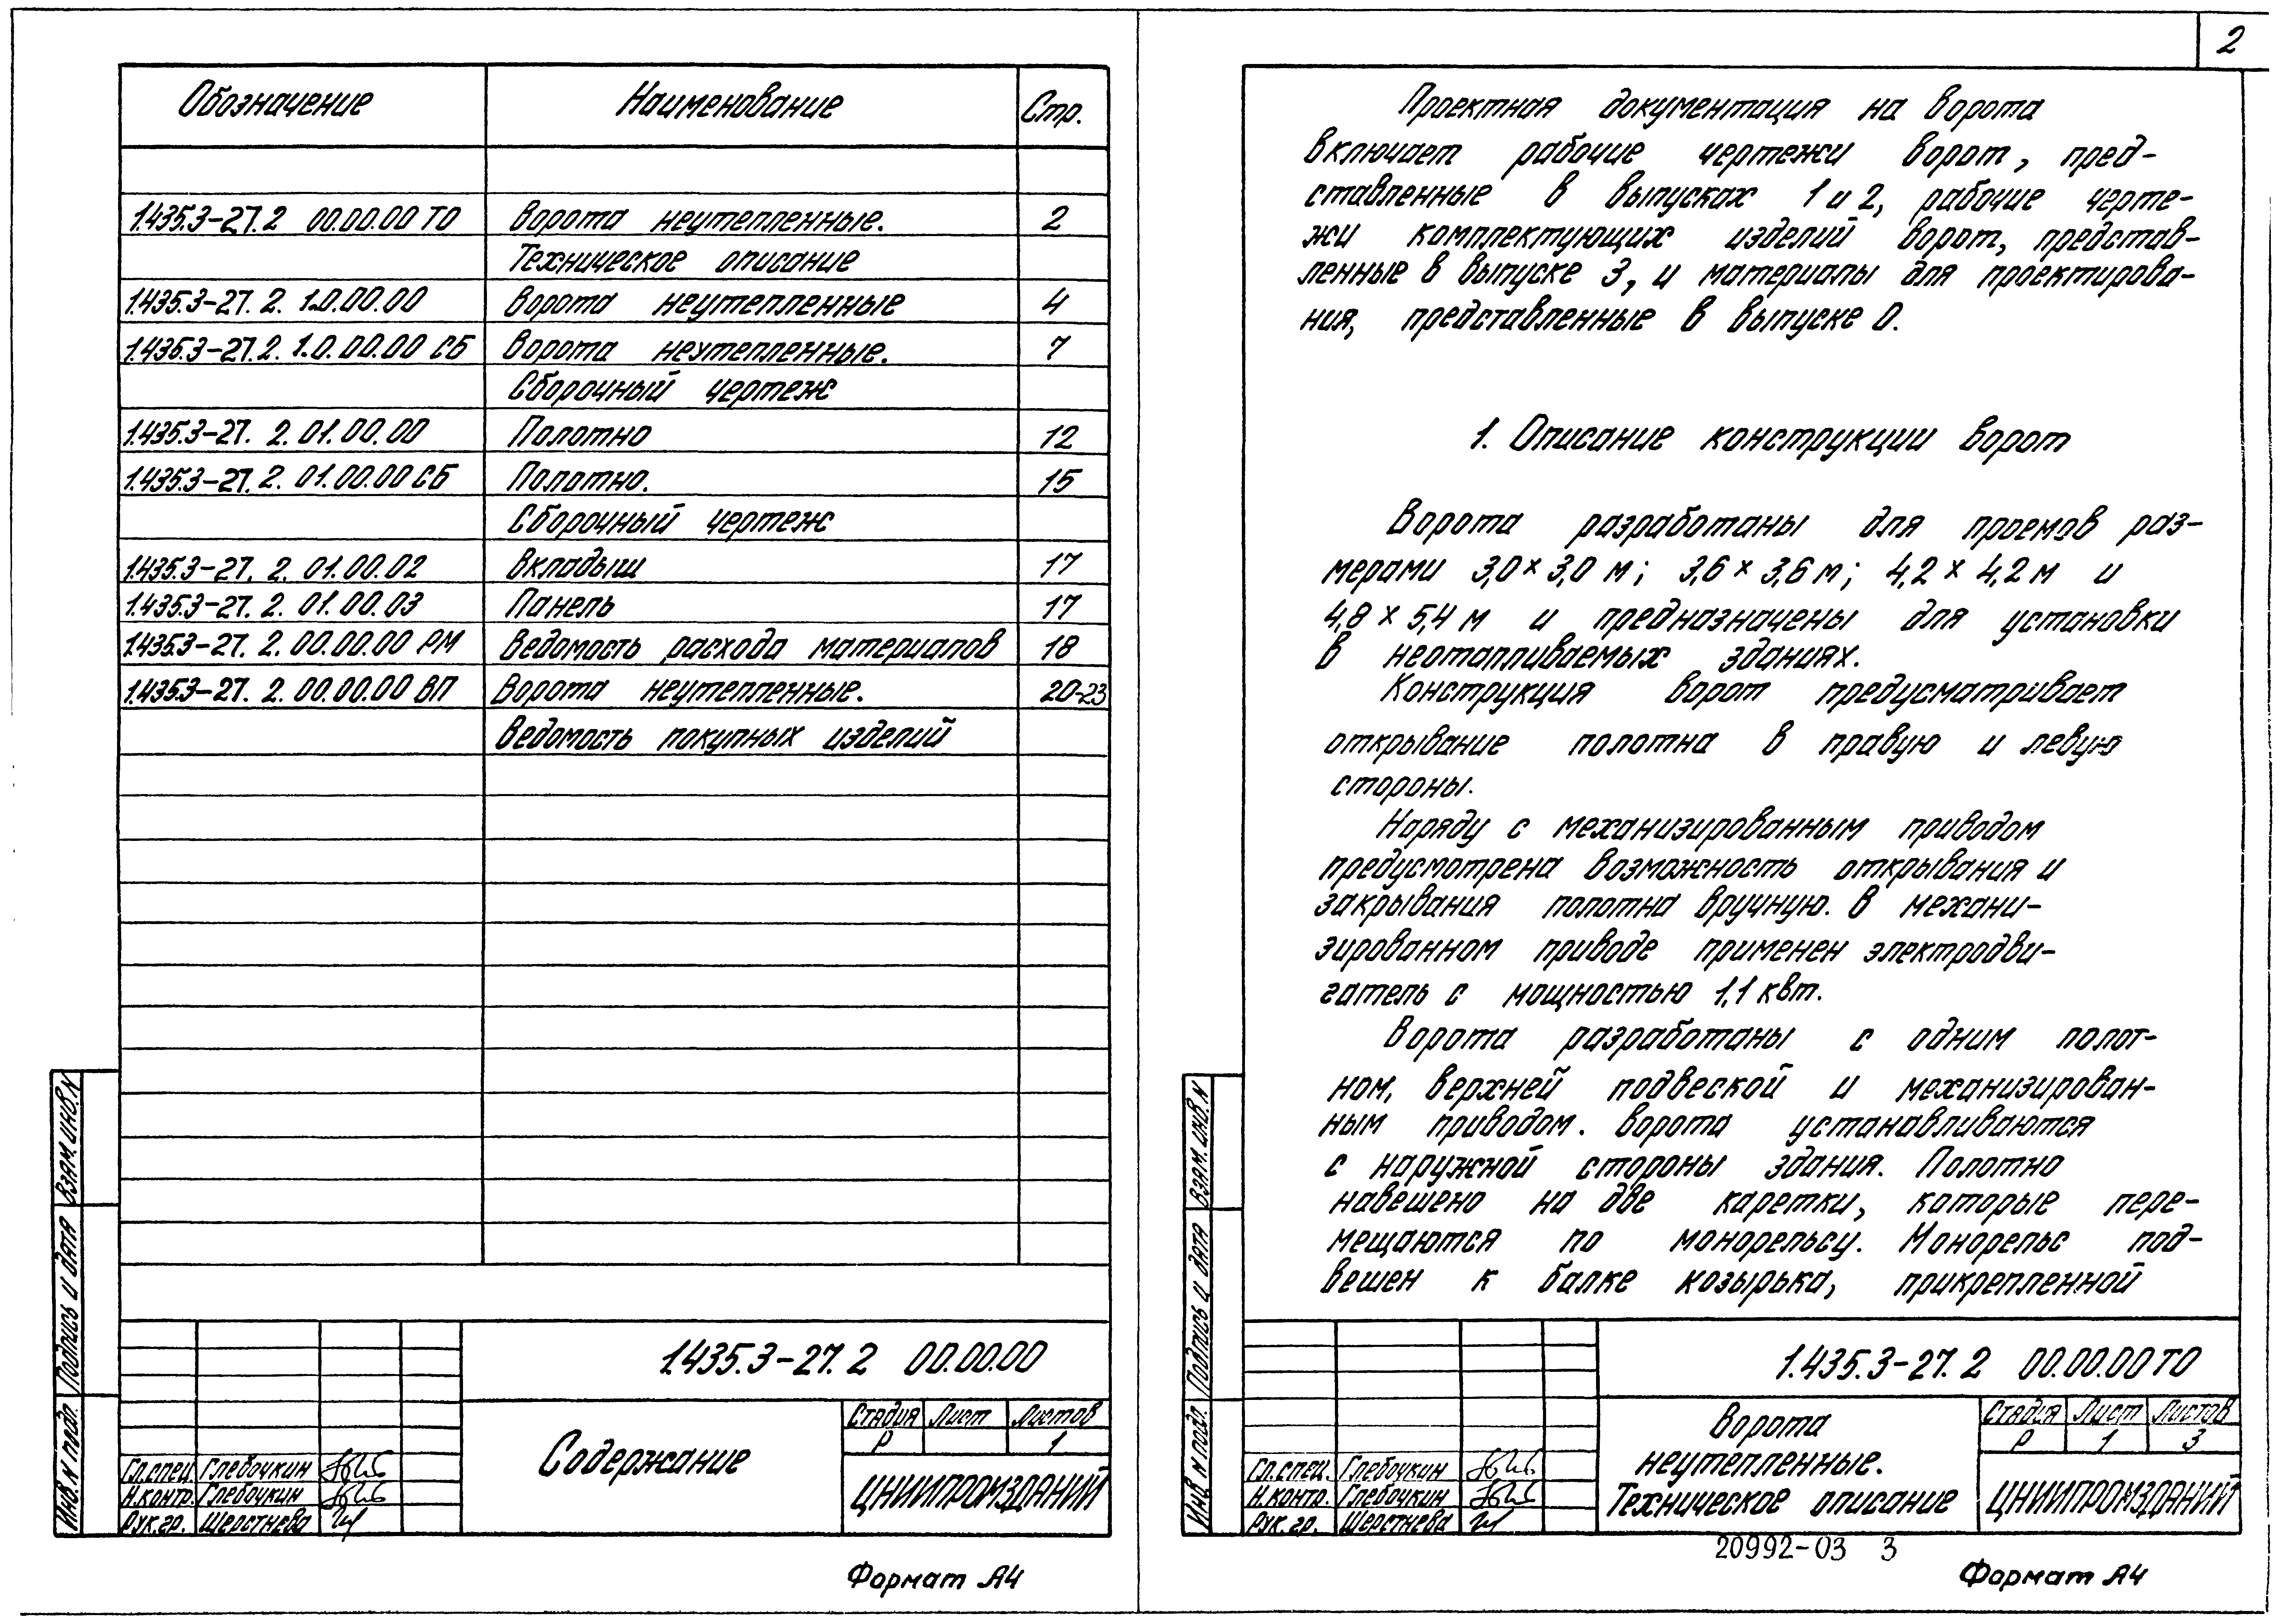 Обозначение Наименование Стр.
1.435.3-27.2 00.00.00 ТО Ворота неутепленные. 2
Техническое описание
1.435.3-27. 2. 1.0.00.00 Ворота неутепленные 4
1.435.3-27.2. 1.0.00.00 СБ Ворота неутепленные. 7
Сборочный чертеж
1.435.3-27. 2. 01.00.00 Полотно 12
1.435.3-27. 2. 01.00.00 СБ Полотно. 15
Сборочный чертеж
1.435.3-27. 2. 01.00.02 Вкладыш 17
1.435.3-27. 2. 01.00.03 Панель 17
1.435.3-27. 2. 00.00.00 РМ Ведомость расхода материалов 18
1.435.3-27. 2. 00.00.00 ВП Ворота неутепленные. 20-23
Ведомость покупных изделий
Взам. инв. N
Подпись и дата
Инв. N подл.
1.435.3-27.2 00.00.00
Содержание
Стадия Лист Листов
Р 1
ЦНИИПРОМЗДАНИЙ
Гл.спец. Глебочкин
Н.контр. Глебочкин
Рук.гр. Шерстнева
Формат А4
2
Проектная документация на ворота
включает рабочие чертежи ворот, пред-
ставленные в выпусках 1 и 2, рабочие черте-
жи комплектующих изделий ворот, представ-
ленные в выпуске 3, и материалы для проектирова-
ния, представленные в выпуске 0.
1. Описание конструкции ворот
Ворота разработаны для проемов раз-
мерами 3,0 × 3,0 м; 3,6 × 3,6 м; 4,2 × 4,2 м и
4,8 × 5,4 м и предназначены для установки
в неотапливаемых зданиях.
Конструкция ворот предусматривает
открывание полотна в правую и левую
стороны.
Наряду с механизированным приводом
предусмотрена возможность открывания и
закрывания полотна вручную. В механи-
зированном приводе применен электродви-
гатель с мощностью 1,1 квт.
Ворота разработаны с одним полот-
ном, верхней подвеской и механизирован-
ным приводом. Ворота устанавливаются
с наружной стороны здания. Полотно
навешено на две каретки, которые пере-
мещаются по монорельсу. Монорельс под-
вешен к балке козырька, прикрепленной
Взам. инв. N
Подпись и дата
Инв. N подл.
1.435.3-27. 2 00.00.00 ТО
Ворота
неутепленные.
Техническое описание
Стадия Лист Листов
Р 1 3
ЦНИИПРОМЗДАНИЙ
Гл.спец. Глебочкин
Н.контр. Глебочкин
Рук.гр. Шерстнева
20992-03 3
Формат А4